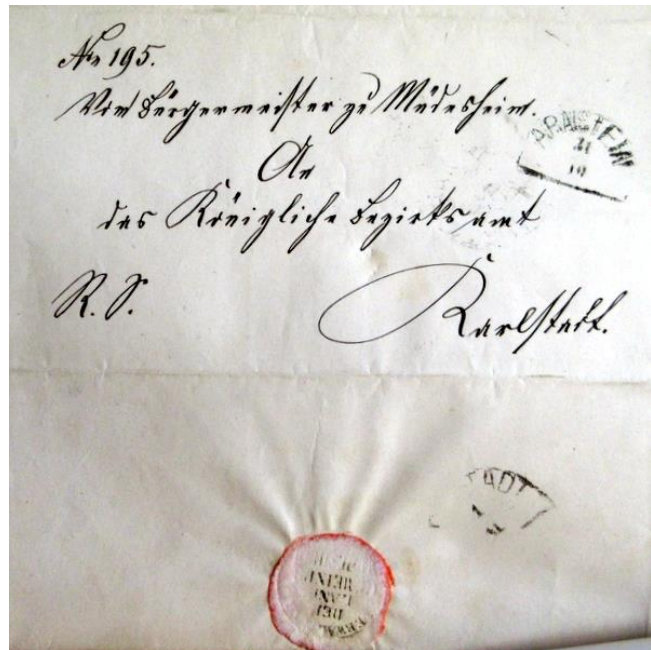 No 195.
Vom Bürgermeister zu Müdesheim.
ARNSTEIN
31
10
An
das Königliche Bezirksamt
R. S.
Karlstadt.
1